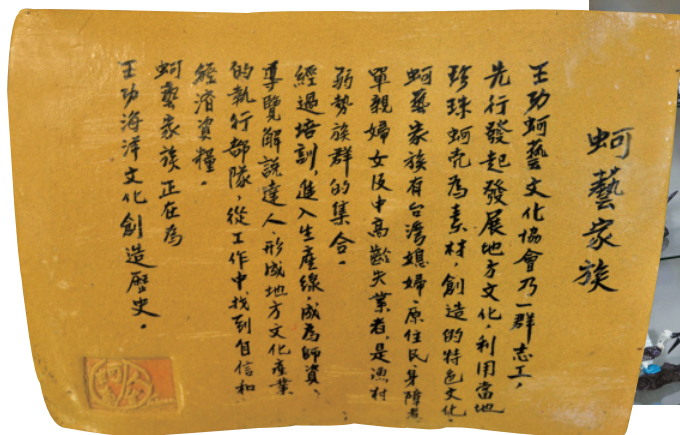 蚵藝家族
王功蚵藝文化協會乃一群志工，
先行發起發展地方文化，利用當地
珍珠蚵壳為素材，創造的特色文化。
蚵藝家族有台灣媳婦、原住民、身障者、
單親婦女及中高齡失業者，是漁村
弱勢族群的集合。
經過培訓，進入生產線，成為師資、
導覽解說達人，形成地方文化產業
的執行部隊，從工作中，找到自信和
經濟資糧。
蚵藝家族正在為
王功海洋文化創造歷史。